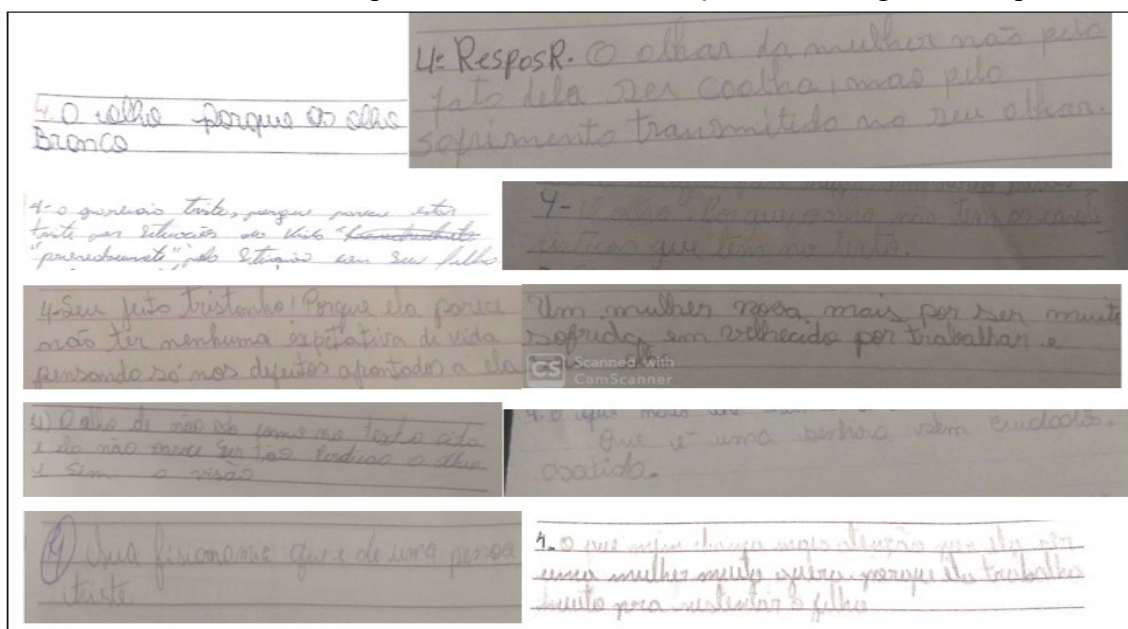 4. O olho porque os olho
Bronco
4= ResposR. O olhar da mulher não pelo
fato dela ser coalha, mas pelo
sofrimento transmitido no seu olhar.
4- o triste, porque parece estar
triste por situações da vida
pela situação com seu filho
4- O olho. Porque, o olho não tem as caracte
rísticas que tem no texto.
4-Seu jeito tristonho! Porque ela parece
não ter nenhuma expetativa de vida
pensando só nos defeitos apontados a ela
Um mulher nova mais por ser muito
sofrida, em velhecido por trabalhar e
CS Scanned with
CamScanner
4) O olho de não como no texto cita
e ela não parece ter o olho
e sim a visão
4. O que mais
Que é uma senhora sem cuidados.
abatida.
4) Sua fisionomia que e de uma pessoa
triste
4- O que mim chama mais atenção por ela ser
uma mulher muito porque ela trabalha
muito pra sustentar o filho